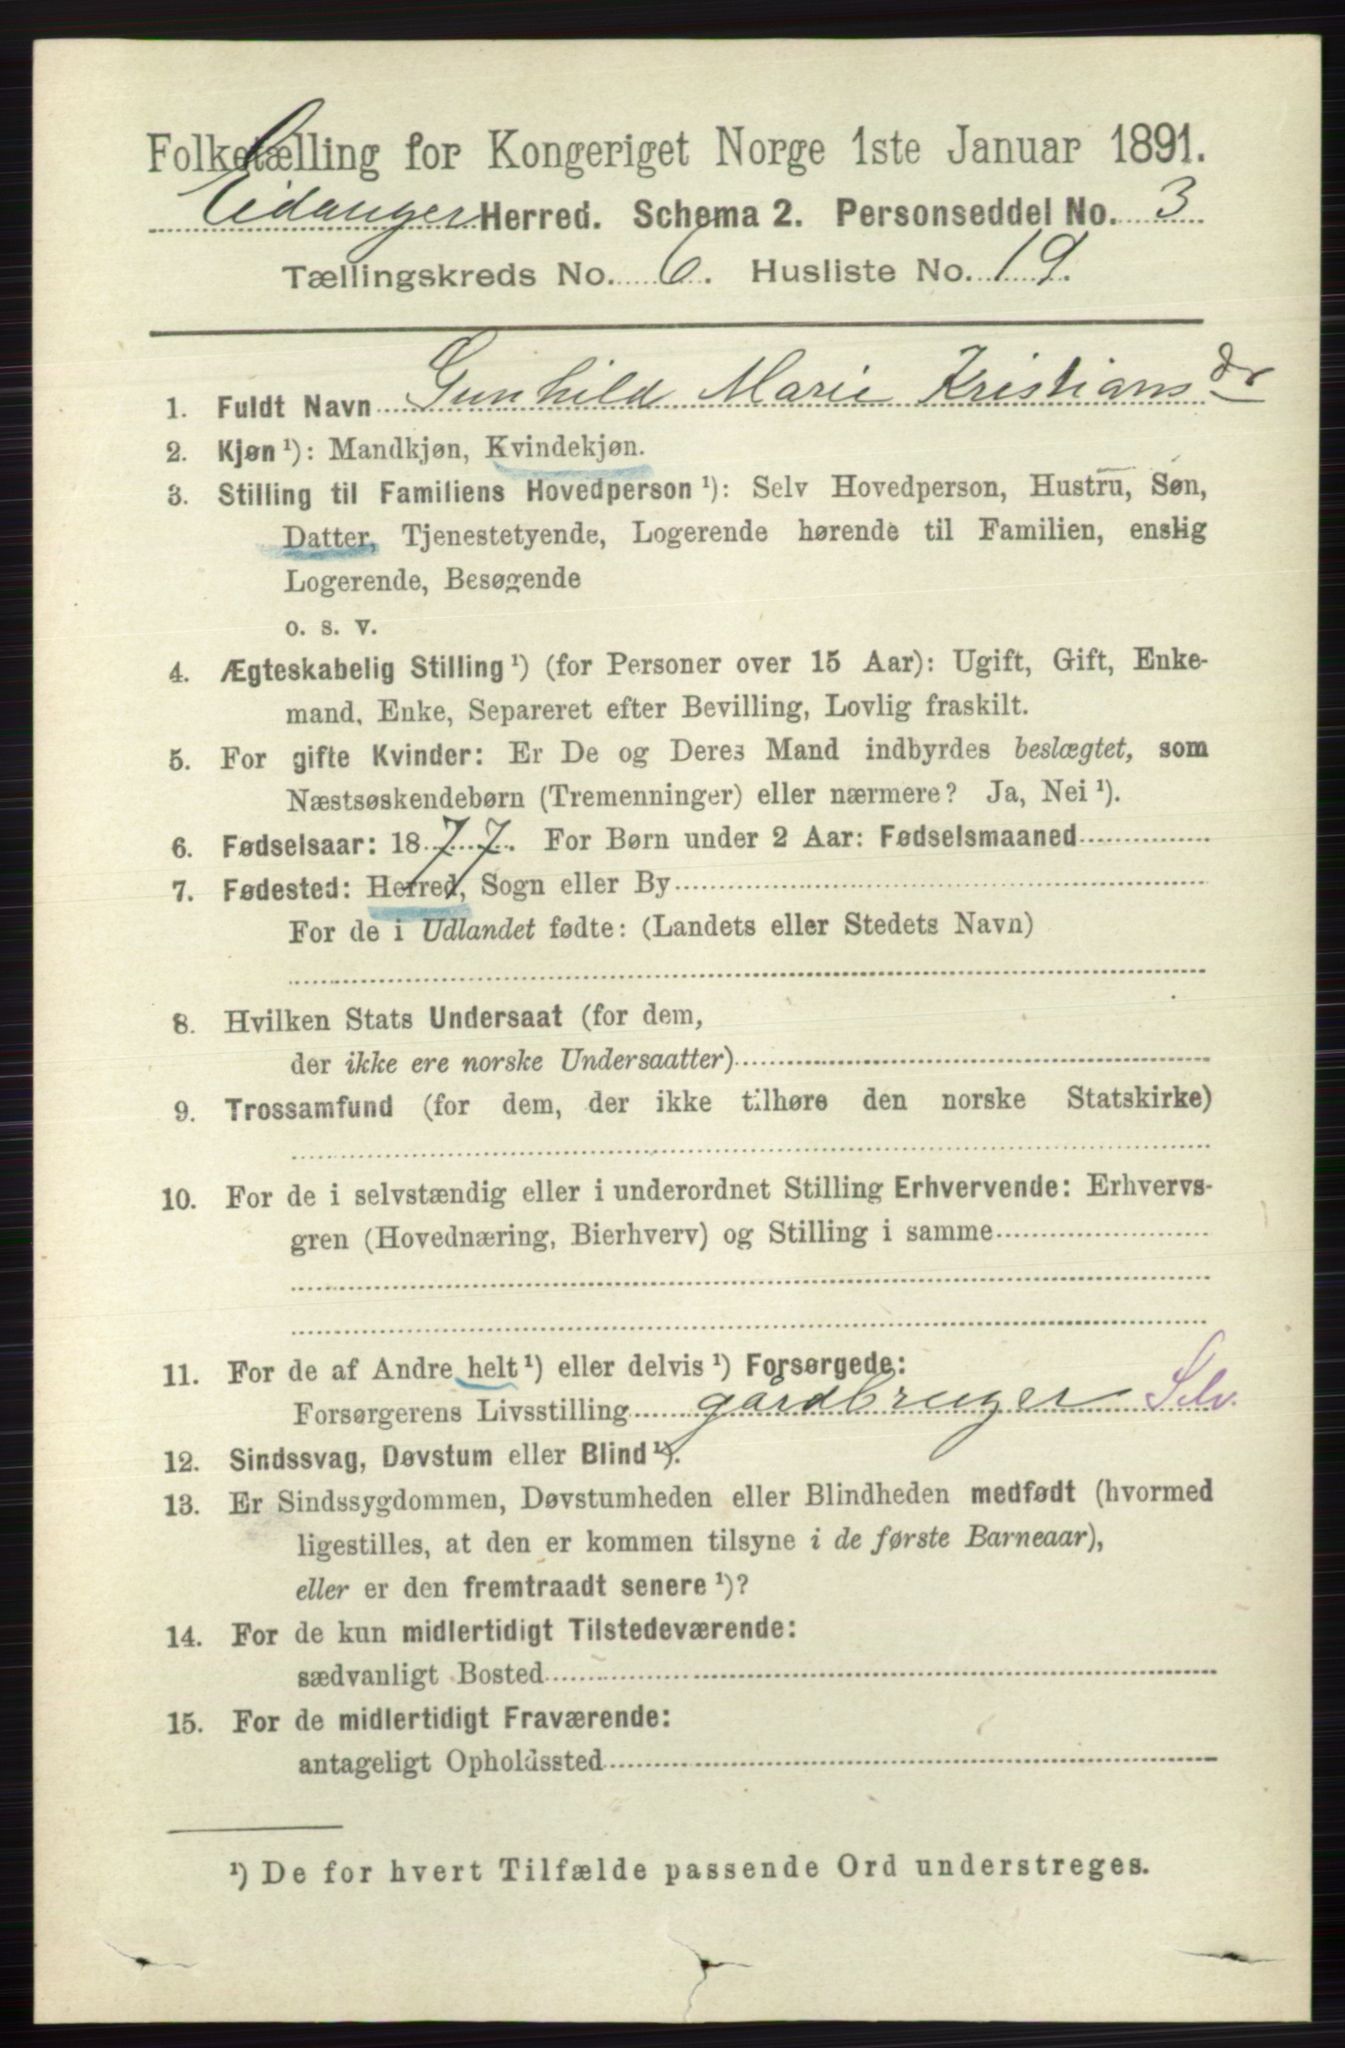 Folketælling for Kongeriget Norge 1ste Januar 1891.
Eidanger Herred. Schema 2. Personseddel No. 3
Tællingskreds No. 6. Husliste No. 19.
1. Fuldt Navn Gunhild Marie Kristians dr
2. Kjøn ¹): Mandkjøn, Kvindekjøn.
3. Stilling til Familiens Hovedperson ¹): Selv Hovedperson, Hustru, Søn,
Datter, Tjenestetyende, Logerende hørende til Familien, enslig
Logerende, Besøgende
o. s. v.
4. Ægteskabelig Stilling ¹) (for Personer over 15 Aar): Ugift, Gift, Enke-
mand, Enke, Separeret efter Bevilling, Lovlig fraskilt.
5. For gifte Kvinder: Er De og Deres Mand indbyrdes beslægtet, som
Næstsøskendebørn (Tremenninger) eller nærmere? Ja, Nei ¹).
6. Fødselsaar: 1877. For Børn under 2 Aar: Fødselsmaaned
7. Fødested: Herred, Sogn eller By
For de i Udlandet fødte: (Landets eller Stedets Navn)
8. Hvilken Stats Undersaat (for dem,
der ikke ere norske Undersaatter)
9. Trossamfund (for dem, der ikke tilhøre den norske Statskirke)
10. For de i selvstændig eller i underordnet Stilling Erhvervende: Erhvervs-
gren (Hovednæring, Bierhverv) og Stilling i samme
11. For de af Andre helt ¹) eller delvis ¹) Forsørgede:
Forsørgerens Livsstilling gårdbruger Selv.
12. Sindssvag, Døvstum eller Blind ¹).
13. Er Sindssygdommen, Døvstumheden eller Blindheden medfødt (hvormed
ligestilles, at den er kommen tilsyne i de første Barneaar),
eller er den fremtraadt senere ¹)?
14. For de kun midlertidigt Tilstedeværende:
sædvanligt Bosted
15. For de midlertidigt Fraværende:
antageligt Opholdssted
¹) De for hvert Tilfælde passende Ord understreges.